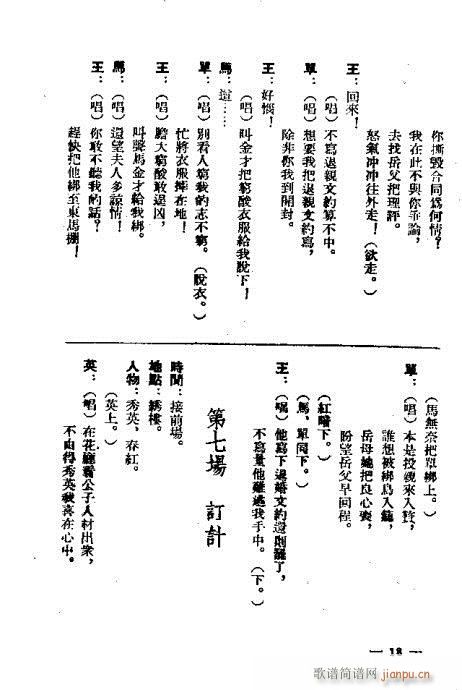 你撕毀合同爲何情?
我在此不與你爭論,
去找岳父把理評。
怒氣冲冲往外走!(欲走。)
王:回來!
(唱)不寫退親文約算不中。
單:(唱)想要我把退親文約寫,
除非你我到開封。
王:好惱!
(唱)叫金才把窮酸衣服給我脫下!
馬:這……
單:(唱)別看人窮我的志不窮。(脫衣。)
忙將衣服摔在地!
王:(唱)膽大窮酸敢逞凶,
叫聲馬金才給我綁。
馬:(唱)還望夫人多諒情!
王:(唱)你敢不聽我的話?
趕快把他綁至東馬棚!
(馬無奈把單綁上。)
單:(唱)本是投親來入贅,
誰想被綁鳥入籠,
岳母她把良心喪,
盼望岳父早回程。
(馬、單同下。)
(紅暗下。)
王:(唱)他寫下退婚文約還則罷了,
不寫量他難逃我手中。(下。)
第七場 訂計
時間:接前場。
地點:綉樓。
人物:秀英、春紅。
(英上。)
英:(唱)在花廳看公子人材出衆,
不由得秀英我喜在心中。
— 18 —
歌谱简谱网
jianpu.cn